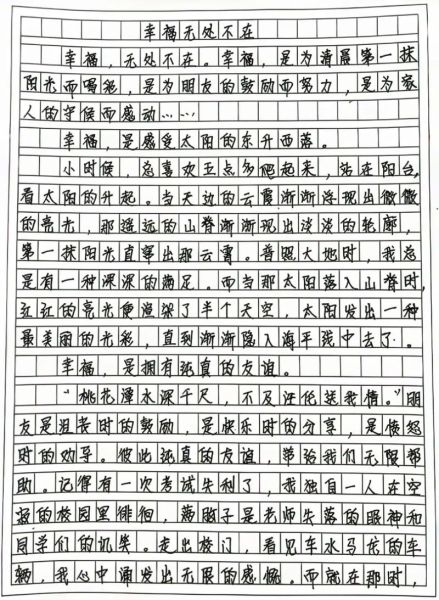 幸福无处不在
幸福，无处不在。幸福，是为清晨第一抹
阳光而喝彩，是为朋友的鼓励而努力，是为家
人的守候而感动……
幸福，是感受太阳的东升西落。
小时候，总喜欢五点多爬起来，站在阳台，
看太阳的升起。当天边的云霞渐渐浮现出微微
的亮光，那遥远的山脊渐渐现出淡淡的轮廓，
第一抹阳光直窜出那云霄。普照大地时，我总
是有一种深深的满足。而当那太阳落入山脊时，
红红的亮光便渲染了半个天空，太阳发出一种
最美丽的光彩，直到渐渐隐入海平线中去了。
幸福，是拥有纯真的友谊。
“桃花潭水深千尺，不及汪伦送我情。”朋
友是沮丧时的鼓励，是快乐时的分享，是愤怒
时的劝导。彼此纯真的友谊，带给我们无限帮
助。记得有一次考试失利了，我独自一人在空
寂的校园里徘徊，满脑子是老师失落的眼神和
同学们的讥笑。走出校门，看见车水马龙的车
辆，我心中涌发出无限的感慨。而就在那时，